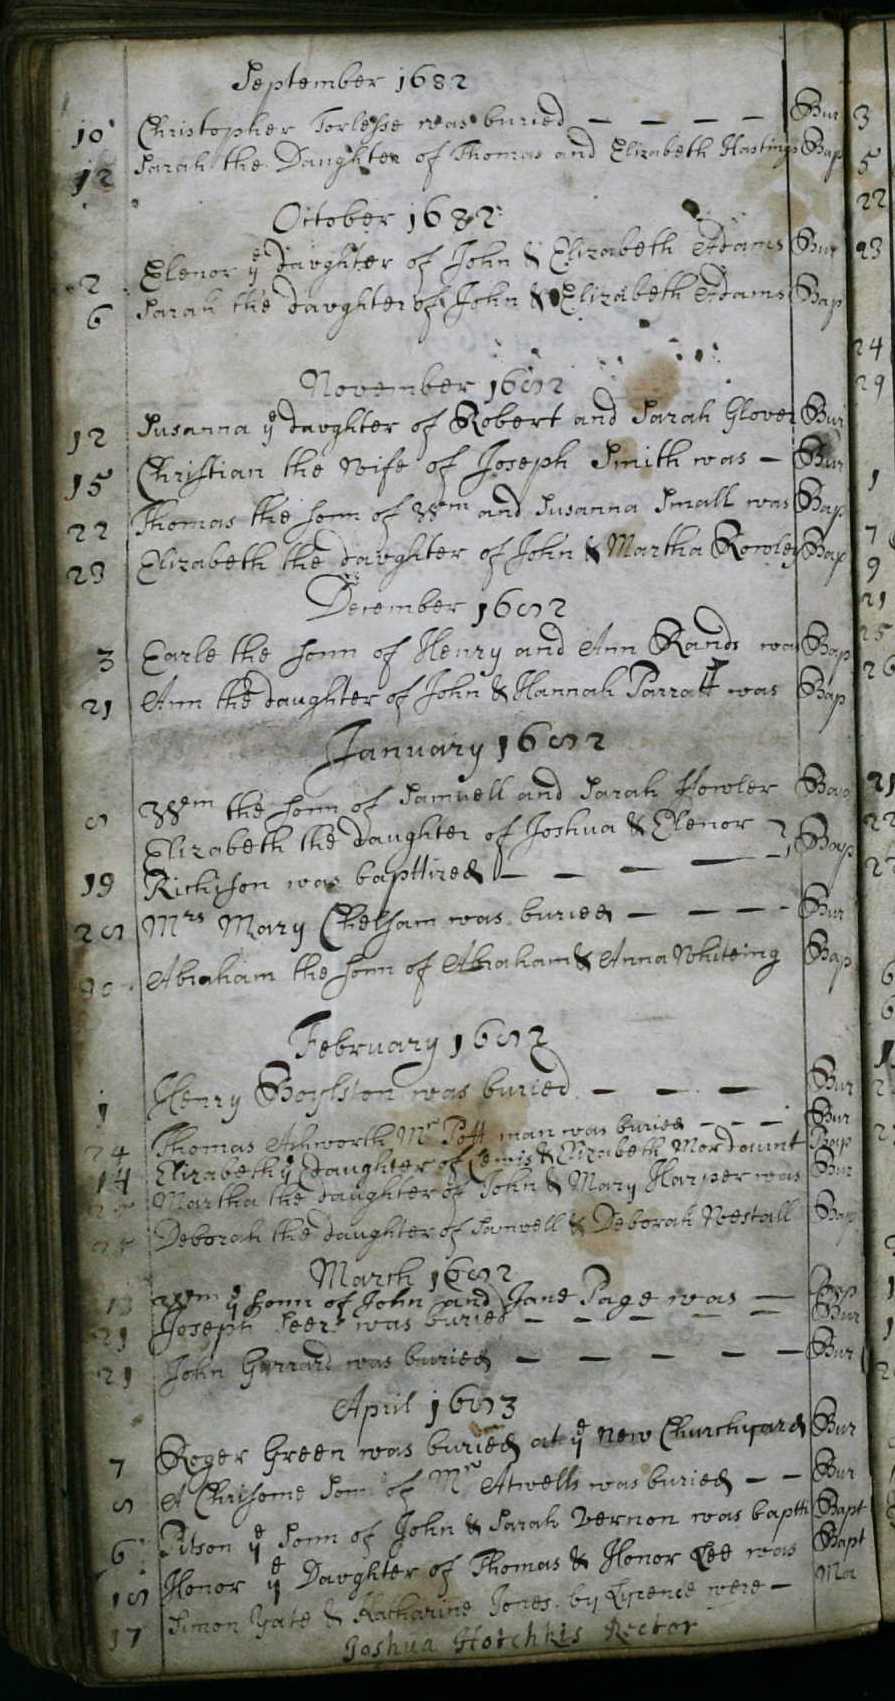 September 1682
10 Christopher Torlesse was buried Bur
12 Sarah the Daughter of Thomas and Elizabeth Hastings Bap
October 1682
2 Elenor ye daughter of John & Elizabeth Adams Bur
6 Sarah the daughter of John & Elizabeth Adams Bap
November 1682
12 Susanna ye daughter of Robert and Sarah Glover Bur
15 Christian the Wife of Joseph Smith was – Bur
22 Thomas the sonn of Wm and Susanna Small was Bap
23 Elizabeth the daughter of John & Martha Rowley Bap
December 1682
3 Earle the sonn of Henry and Ann Rands was Bap
21 Ann the daughter of John & Hannah Parratt was Bap
January 1682
8 Wm the sonn of Samuell and Sarah Howler Bap
Elizabeth the daughter of Joshua & Elenor Bap
19 Richison was bapttized
28 Mrs Mary Chelsam was buried Bur
Abraham the sonn of Abraham & Anna Whiteing Bap
February 1682
1 Henry Boylston was buried Bur
24 Thomas Ashworth Mr Pott man was buried Bur
14 Elizabeth ye daughter of Lewis & Elizabeth Mordount Bap
Martha the daughter of John & Mary Harper was Bur
Deborah the daughter of Samuell & Deborah Westall Bap
March 1682
13 Wm ye sonn of John and Jane Page was – Bap
21 Joseph Seers was buried Bur
21 John Garrard was buried Bur
April 1683
7 Roger Green was buried at ye new Churchyard Bur
8 A Chrisome Sonn of Mr Atwells was buried – – Bur
6 Pitson ye Sonn of John & Sarah Vernon was baptt Bapt
18 Honor ye Daughter of Thomas & Honor Lee was Bapt
17 Simon Yate & Katharine Jones by Lycence were – Ma
Joshua Hotchkis Rector
3
5
22
23
24
29
1
7
9
21
25
26
21
22